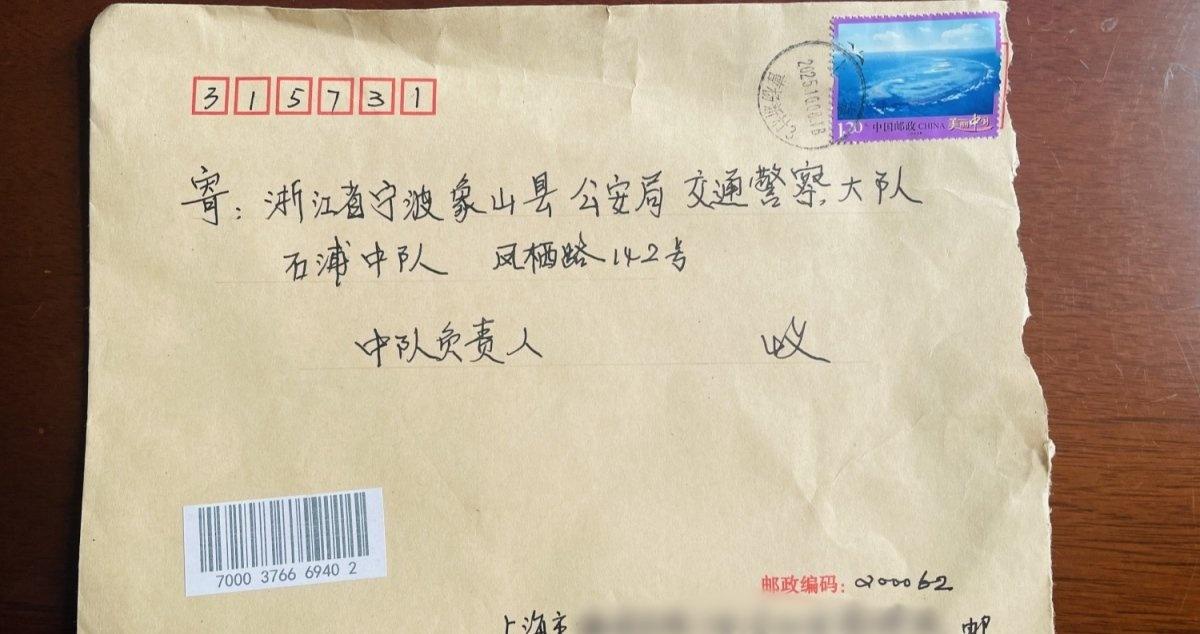 315731
2025.10.08.18
1.20 中国邮政 CHINA 美丽中国
寄：浙江省宁波象山县公安局交通警察大队
石浦中队 凤栖路142号
中队负责人 收
7000 3766 6940 2
邮政编码：200062
上海市 邮